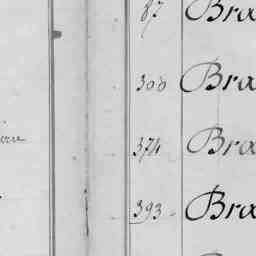 87 Bra
300 Bra
374 Bra
393 Bra